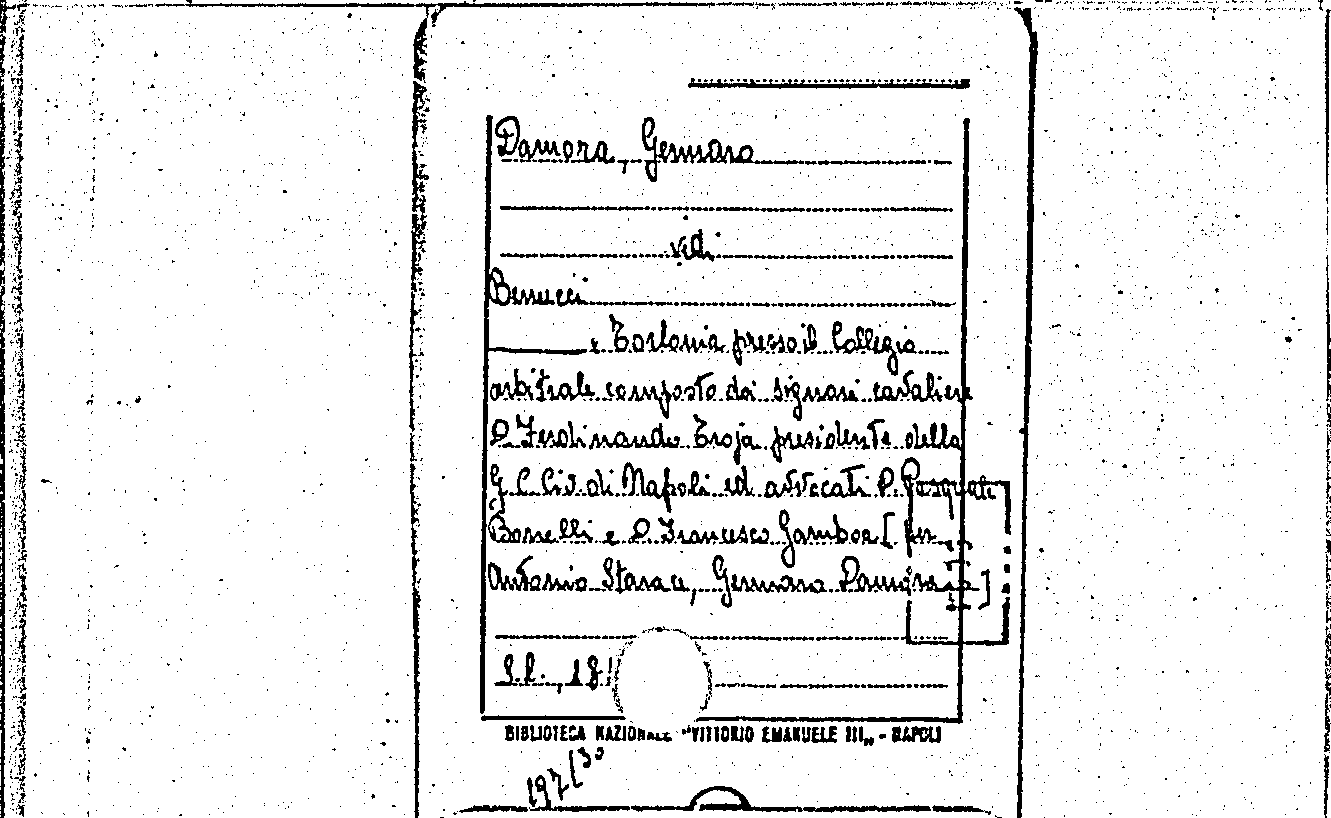 Damora, Gennaro
vedi
Benucci
e Torlonia presso il Collegio
arbitrale composto dai signori cavaliere
D. Ferdinando Troja presidente della
G. C. Civ. di Napoli ed avvocati D. Pasquale
Borrelli e D. Francesco Gamboa [ per
Antonio Starace, Gennaro Damora]
S.l., 18
BIBLIOTECA NAZIONALE "VITTORIO EMANUELE III„ - NAPOLI
197/3